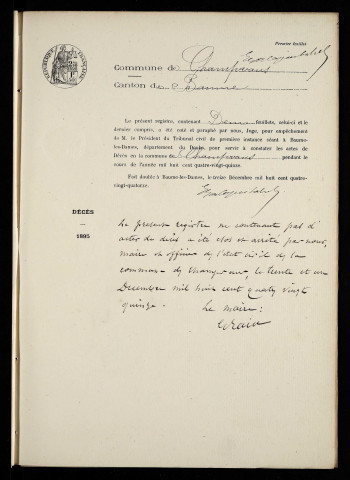 Premier feuillet
RÉPUBLIQUE FRANÇAISE
Commune de Champvans
Canton de Baume
Le présent registre, contenant Deux feuillets, celui-ci et le
dernier compris, a été coté et paraphé par nous, Juge, pour empêchement
de M. le Président du Tribunal civil de première instance séant à Baume-
les-Dames, département du Doubs, pour servir à constater les actes de
Décès en la commune de Champvans pendant le
cours de l'année mil huit cent quatre-vingt-quinze.
Fait double à Baume-les-Dames, le treize Décembre mil huit cent quatre-
vingt-quatorze.
DÉCÈS
1895
Le présent registre ne contenant pas d'
actes de décès a été clos et arrêté par nous,
maire et officier de l'état civil de la
commune de Champvans, le trente et un
Décembre mil huit cent quatre vingt
quinze.
Le maire :